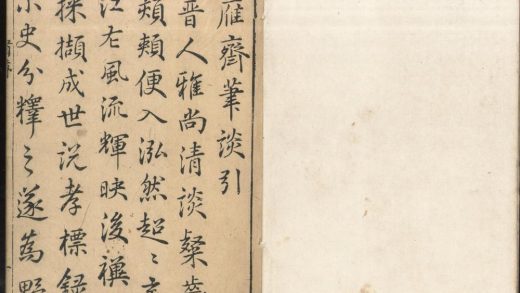 雁齋筆談引
晉人雅尚清談粲
頰頰便入泓然超〻
江左風流輝映後禩
採擷成世說孝標錄
小史分釋之遂爲野